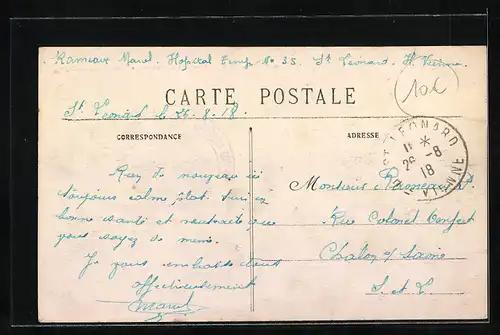 Rameaux Marcel. Hopital Temp No 35 St Léonard H. Vienne
104
CARTE POSTALE
St Léonard le 26-8-18.
CORRESPONDANCE
ADRESSE
ST LEONARD
11 *
26 -8
18
VIENNE
Rien de nouveau ici
toujours calme plat. Suis en
bonne santé et souhaite que
vous soyez de meme.
Je vous embrasse tous
affectueusement
Marcel
Monsieur Rameaux
Rue Colonel Denfert
Chalon s/ Saone
S. et L.